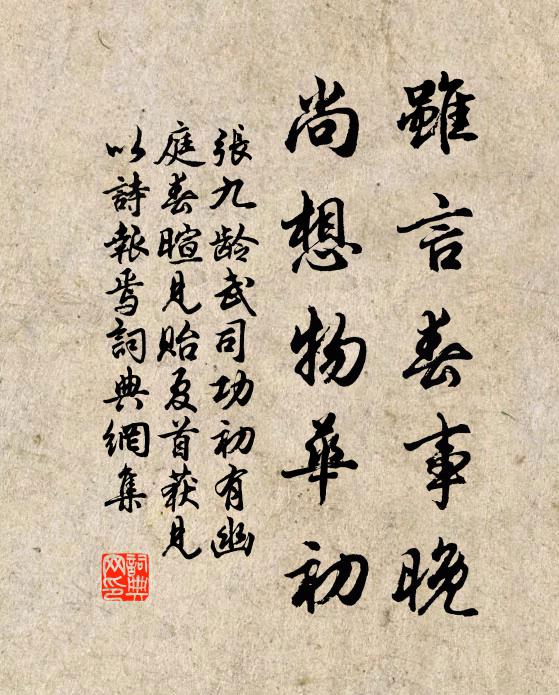 雖言春事晚
尚想物華初
張九龄武司功初有幽
庭春暄見貽夏首获見
以詩報焉詞典網集
詞典网印